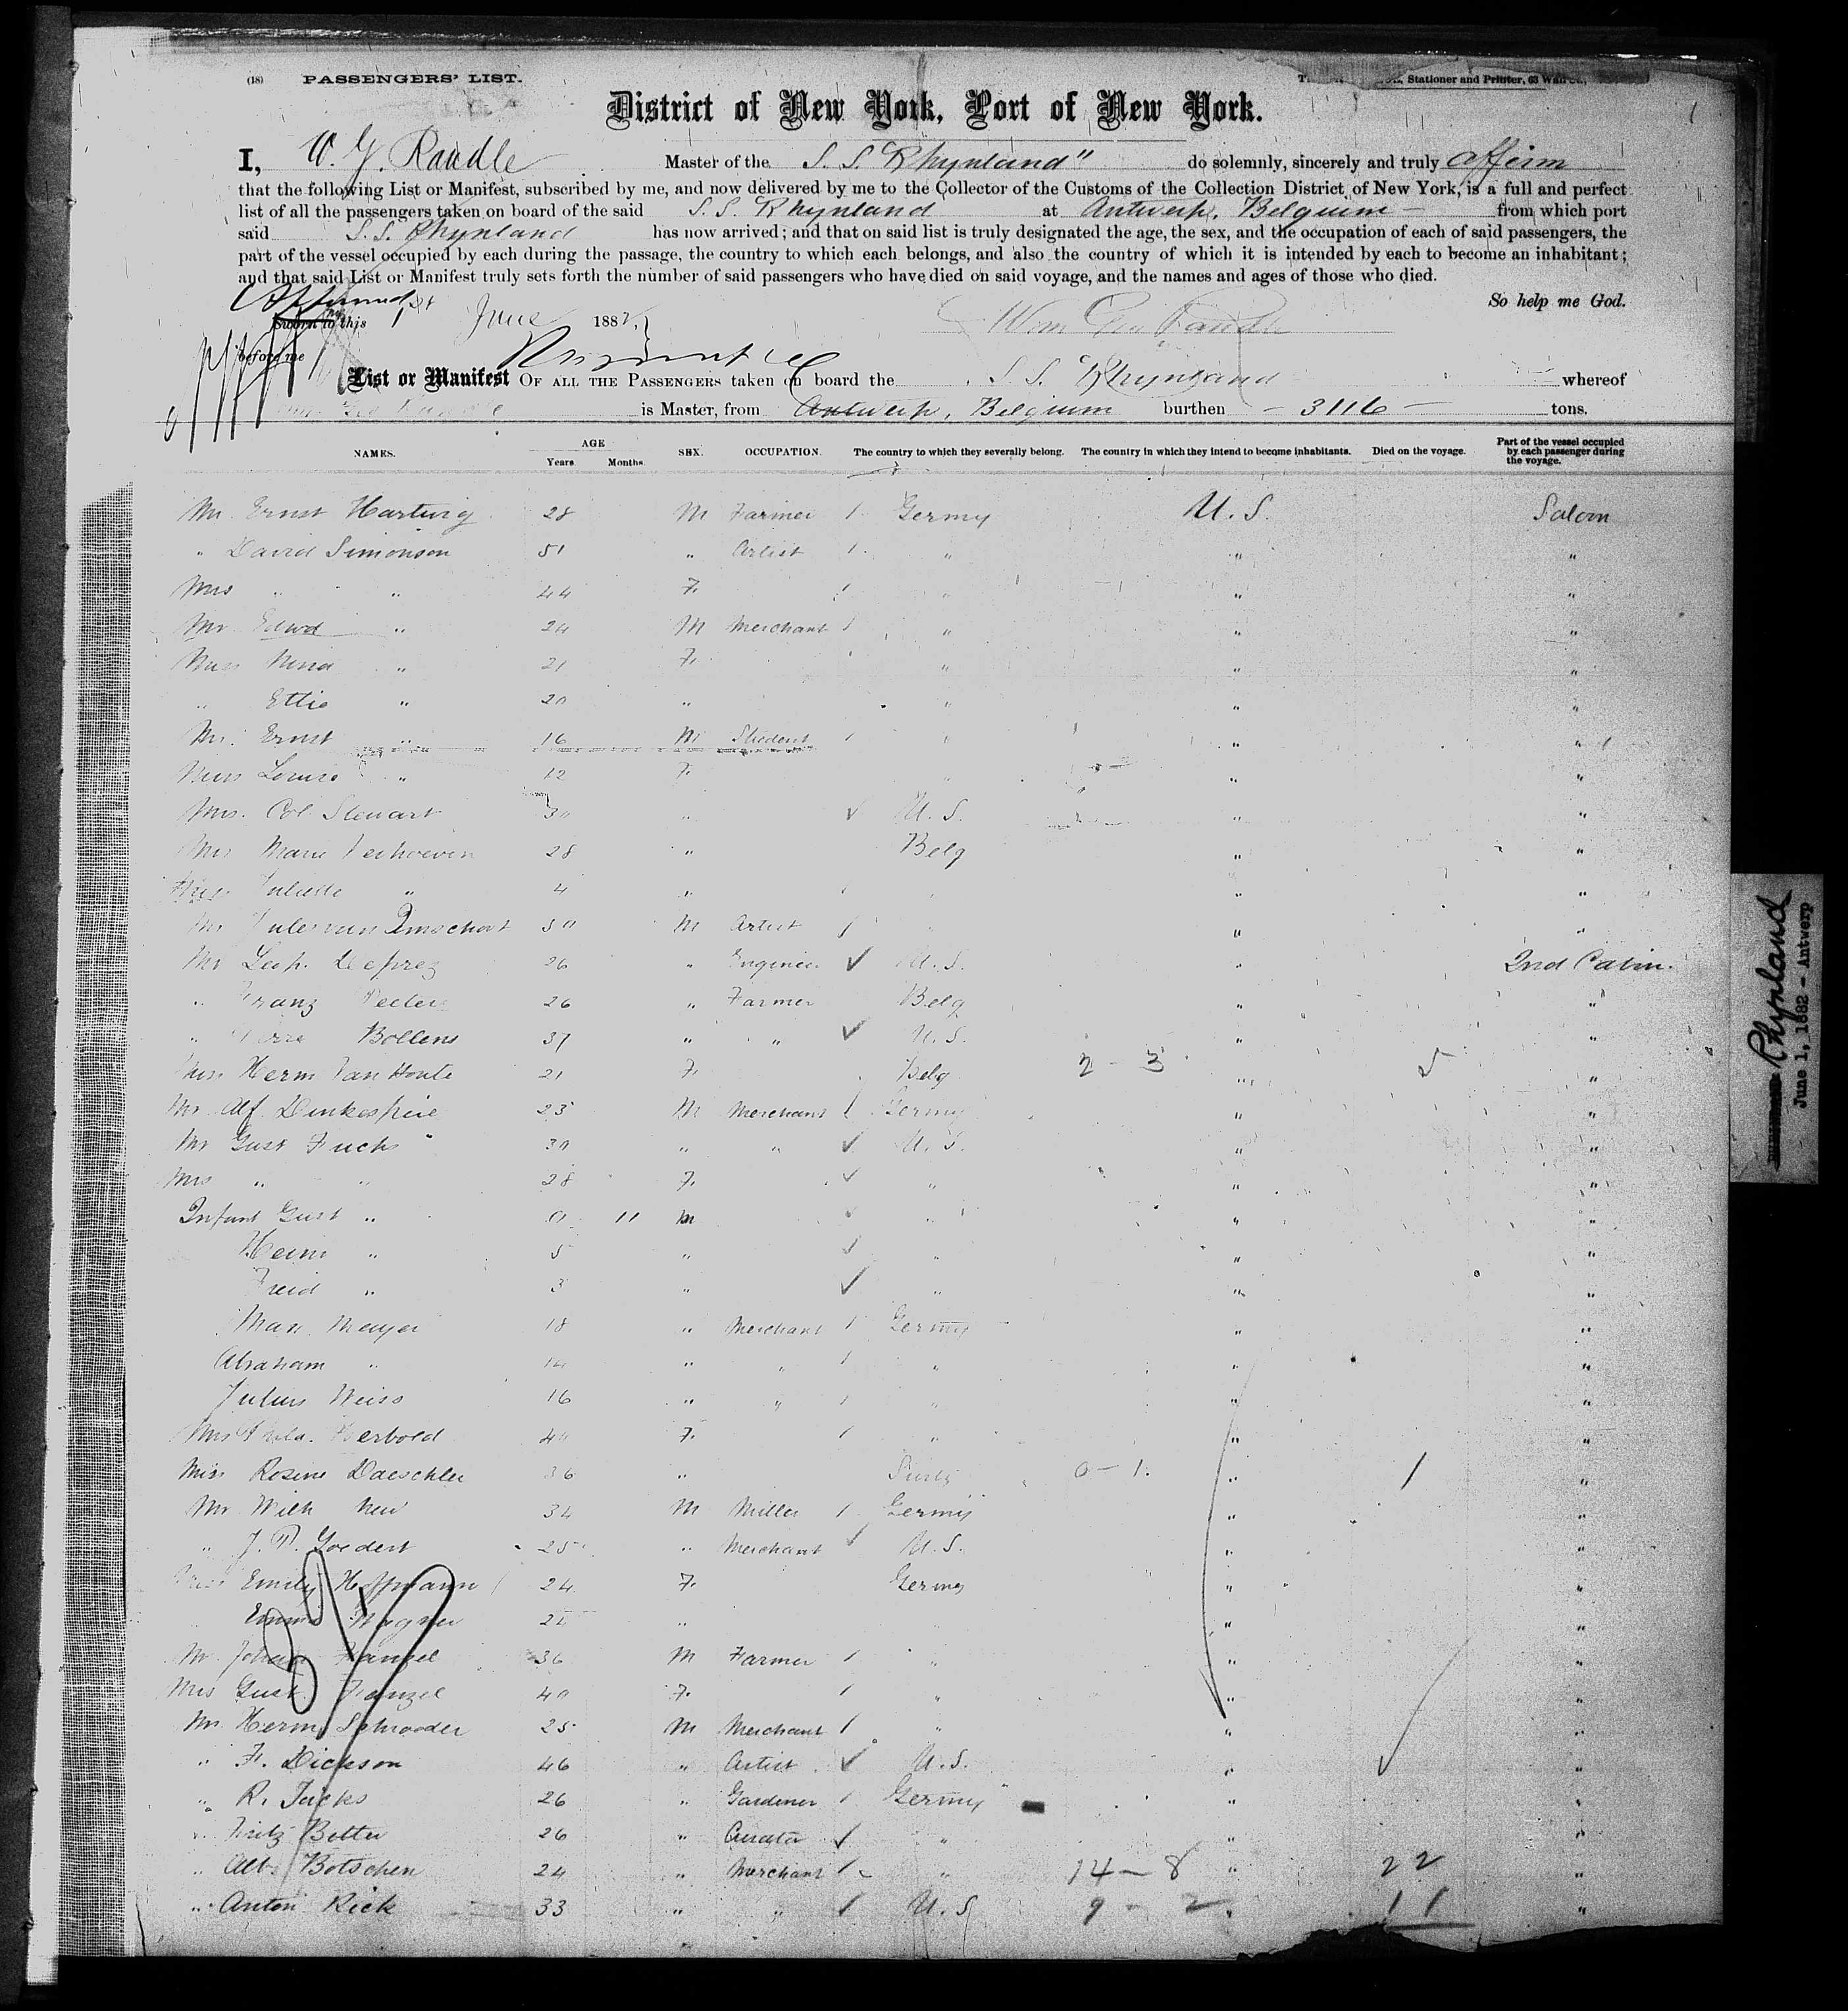 (18) PASSENGERS' LIST. Stationer and Printer, 63
District of New York, Port of New York.
I, W. G. Randle Master of the S. S. Rhynland" do solemnly, sincerely and truly affirm
that the following List or Manifest, subscribed by me, and now delivered by me to the Collector of the Customs of the Collection District of New York, is a full and perfect
list of all the passengers taken on board of the said S. S. Rhynland at Antwerp, Belgium from which port
said S. S. Rhynland has now arrived; and that on said list is truly designated the age, the sex, and the occupation of each of said passengers, the
part of the vessel occupied by each during the passage, the country to which each belongs, and also the country of which it is intended by each to become an inhabitant;
and that said List or Manifest truly sets forth the number of said passengers who have died on said voyage, and the names and ages of those who died.
So help me God.
Affirmed
Sworn to this 1st June 1882, Wm Geo Randle
before me
List or Manifest OF ALL THE PASSENGERS taken on board the S. S. Rhynland whereof
is Master, from Antwerp, Belgium burthen - 3116 - tons.
NAMES. AGE Years Months. SEX. OCCUPATION. The country to which they severally belong. The country in which they intend to become inhabitants. Died on the voyage. Part of the vessel occupied by each passenger during the voyage.
Mr. Ernst Hartwig 28 M Farmer 1 Germy U. S. Saloon
" David Simonson 51 " Artist 1 " " "
Mrs " " 44 F. 1 " " "
Mr Edwd " 24 M Merchant 1 " " "
Miss Nina " 21 F. " " "
" Ettie " 20 " " " "
Mr. Ernst " 16 M Student 1 " " "
Miss Louise " 12 F. " "
Mrs. Col Stewart 30 " ✓ U. S. " "
Mrs Marie Verhoeven 28 " Belg " "
Juliette " 4 " " "
Mr Jules van Imschoot 30 M Artist 1 " " "
Mr Leop. Deprez 26 " Engineer ✓ U. S. " 2nd Cabin.
" Franz Peeters 26 " Farmer Belg " "
" Bollens 37 " " ✓ U. S. " "
Miss Herm Van Houte 21 F. Belg 2 - 3 " 5 "
Mr. Alf. Dinkespiel 23 M Merchant 1 Germy " "
Mr Gust Fuchs 30 " " ✓ U. S. " "
Mrs " " 28 F. ✓ " " "
Infant Gust " 0 11 M ✓ " " "
Heinr " 5 " ✓ " " "
Freid " 3 " ✓ " " "
Max Meyer 18 " Merchant 1 Germy " "
Abraham " 14 " " 1 " " "
Julius Weiss 16 " " 1 " " "
Mrs Herbold 40 F. 1 " " "
Miss Rosine Daeschler 36 " 0 - 1. " 1 "
Mr. Wilh New 34 M Miller 1 Germy " "
" J. P. Goedert 25 " Merchant ✓ U. S. " "
Miss Emily Hoffmann 24 F. Germy " "
" Emma Wagner 22 " " "
Mr. Johann Franzel 36 M Farmer 1 " " "
Mrs Gust. Franzel 40 F. 1 " " "
Mr. Herm. Schroeder 25 M Merchant 1 " " "
" F. Dickson 46 " Artist ✓ U. S. " "
" R. Jucks 26 " Gardener 1 Germy " "
" Fritz Better 26 " ✓ " " "
" Alb. Botschen 24 " Merchant 1 " 14 - 8 " 22 "
" Anton Rick 33 " " 1 U. S 9 - 2 " 11 "
Rhynland
June 1, 1882 - Antwerp